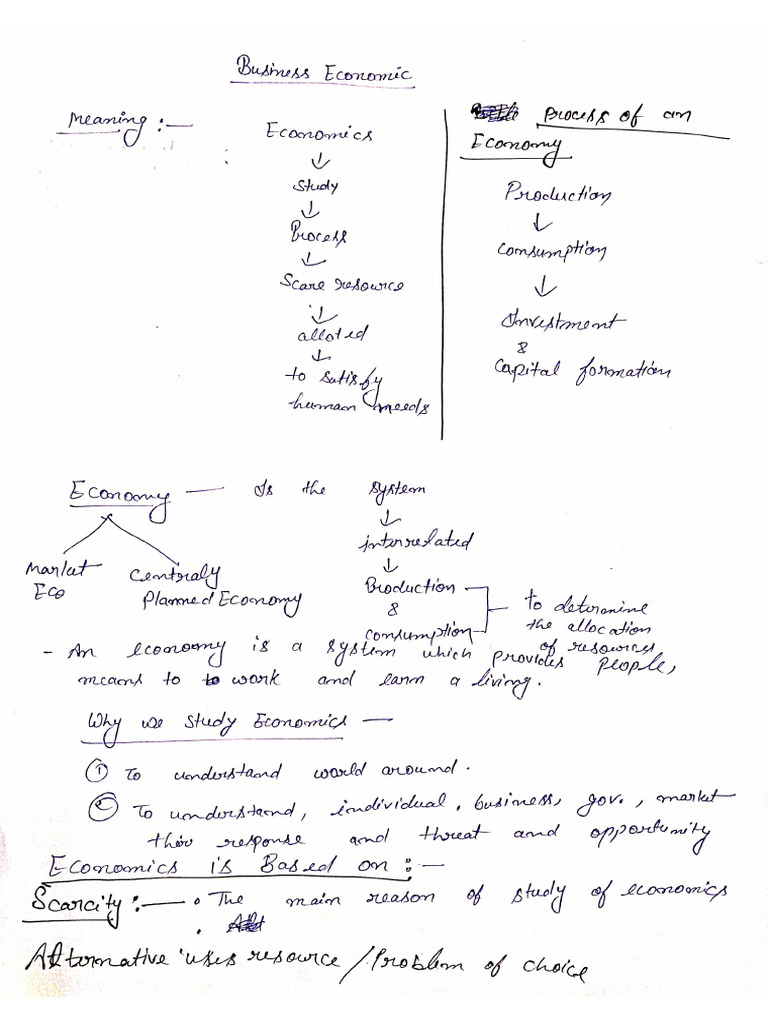 Business Economic
Meaning :—
Economics
↓
Study
↓
Process
↓
Scare resource
↓
alloted
↓
to satisfy
human needs
Process of an
Economy
Production
↓
Consumption
↓
Investment
&
Capital formation
Economy — Is the system
↓
interrelated
↓
Production
&
Consumption
to determine
the allocation
of resources
Market
Eco
Centraly
Planned Economy
- An economy is a system which provides people,
means to to work and earn a living.
Why we study Economics —
① To understand world around.
② To understand, individual, business, gov., market
their response and threat and opportunity
Economics is Based on :—
Scarcity :— • The main reason of study of economics
•
Alternative uses resource / Problem of choice